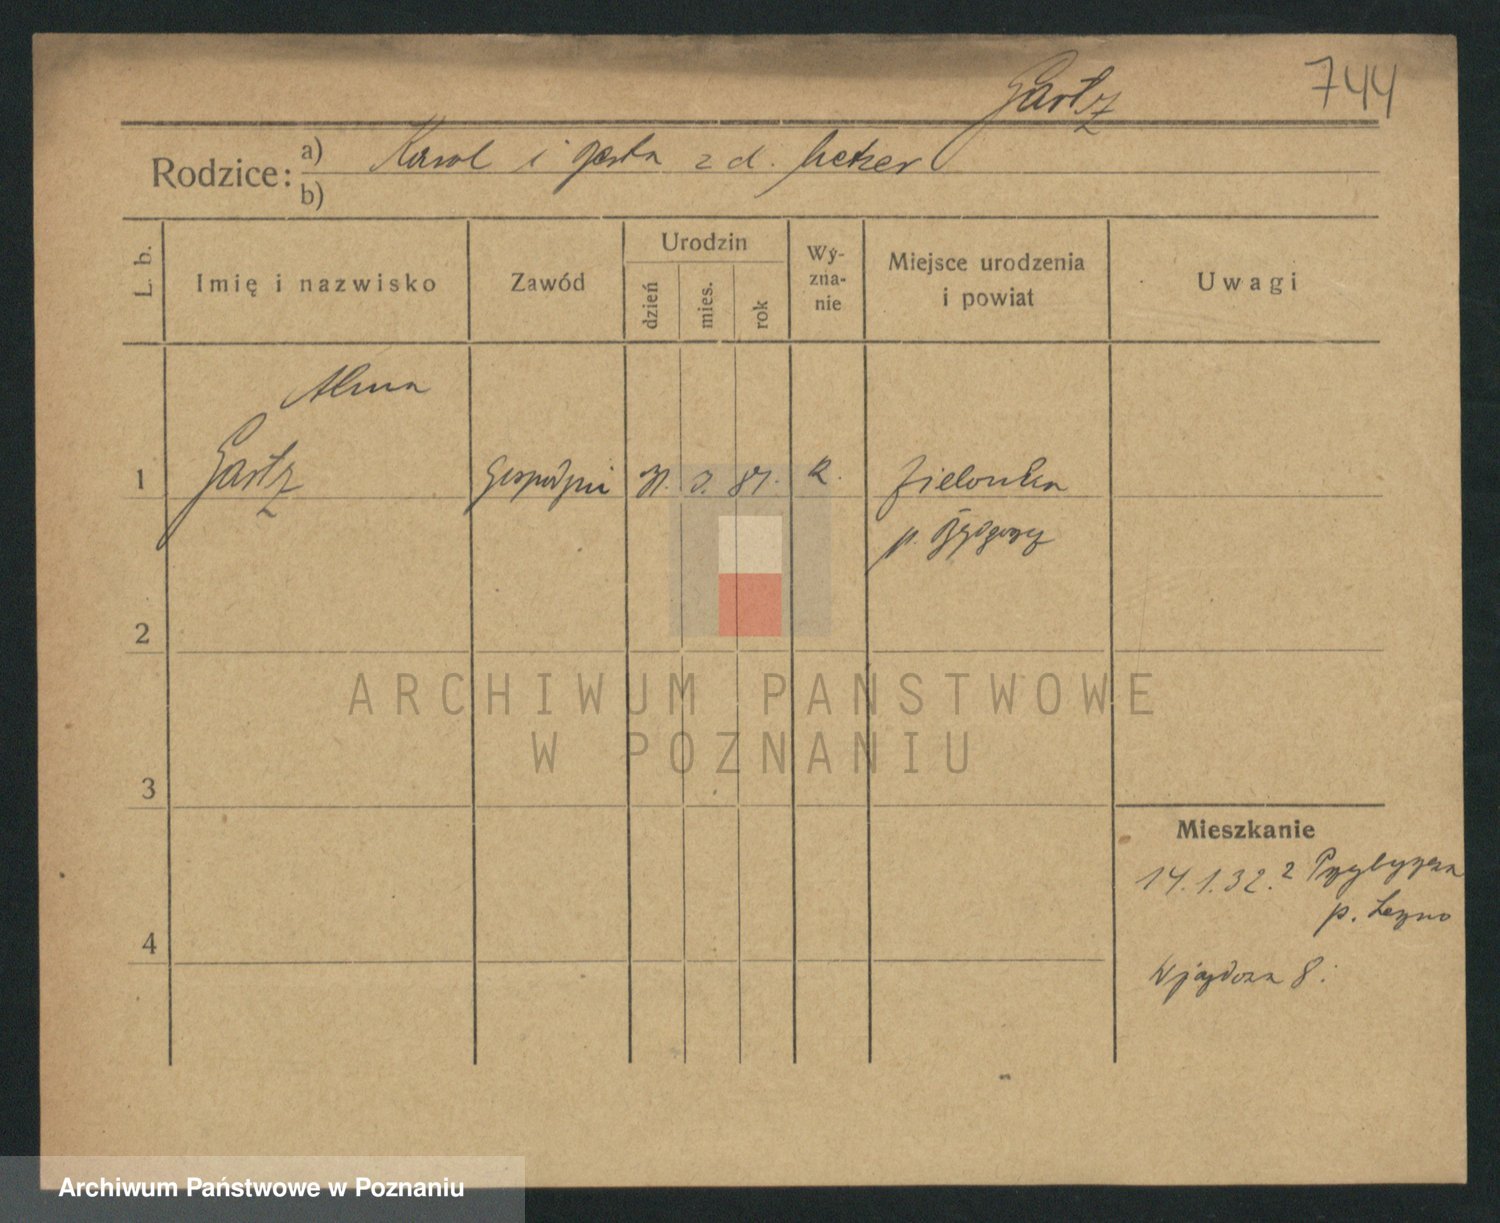 Gartz
744
Rodzice: a) Karol i Berta z d. Hetzer
b)
L. b.
Imię i nazwisko
Zawód
Urodzin
dzień
mies.
rok
Wy-
zna-
nie
Miejsce urodzenia
i powiat
Uwagi
Alma
1 Gartz Gospodyni 31. 3. 81. R. Zielonka
p. Bydgoszcz
2
3
4
Mieszkanie
14.1.32. z
p. Leszno
Wjazdowa 8.
ARCHIWUM PAŃSTWOWE
W POZNANIU
Archiwum Państwowe w Poznaniu